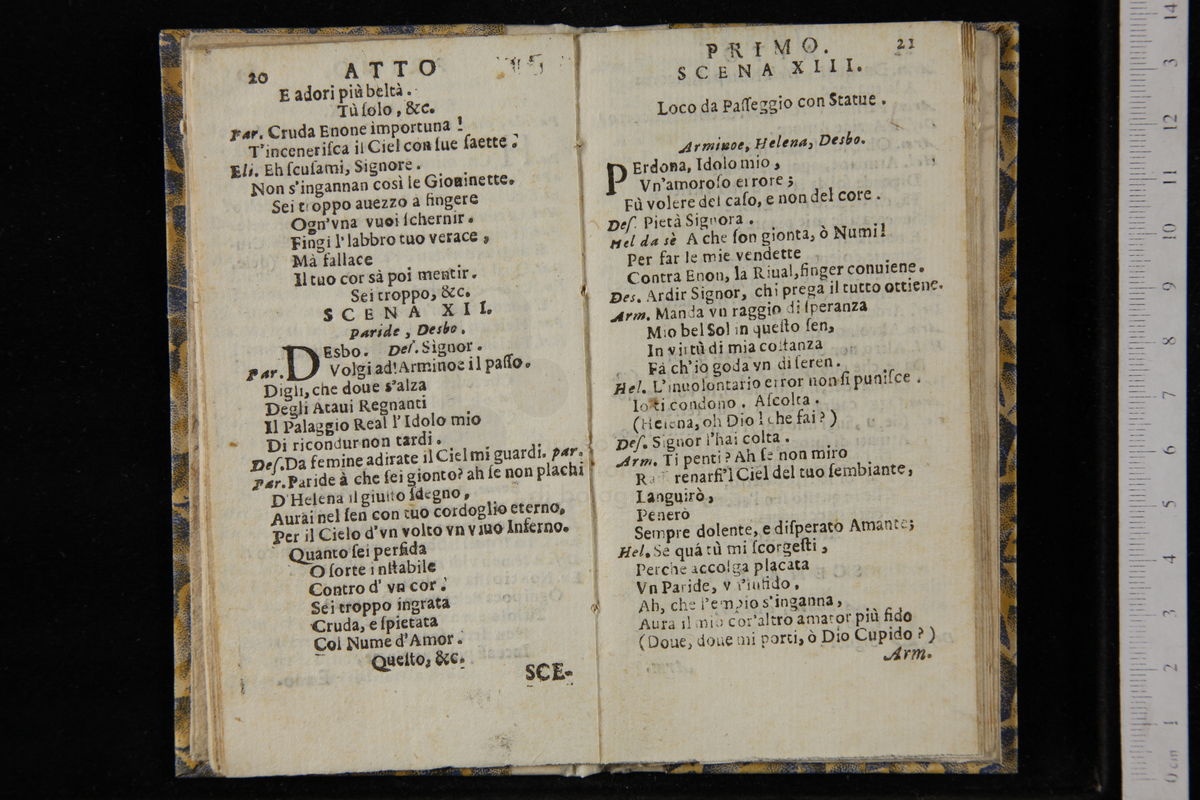 20 ATTO
E adori più beltà.
Tù ſolo, &c.
Par. Cruda Enone importuna!
T'inceneriſca il Ciel con ſue ſaette.
Eli. Eh ſcuſami, Signore.
Non s'ingannan così le Giouinette.
Sei troppo auezzo à fingere
Ogn'vna vuoi ſchernir.
Fingi l'labbro tuo verace,
Mà fallace
Il tuo cor sà poi mentir.
Sei troppo, &c.
SCENA XII.
Paride, Desbo.
Par. DEsbo. Deſ. Signor.
Volgi ad'Arminoe il paſſo.
Digli, che doue s'alza
Degli Ataui Regnanti
Il Palaggio Real l'Idolo mio
Di ricondur non tardi.
Deſ. Da femine adirate il Ciel mi guardi. par.
Par. Paride à che ſei gionto? ah ſe non plachi
D'Helena il giuſto ſdegno,
Aurai nel ſen con tuo cordoglio eterno,
Per il Cielo d'vn volto vn viuo Inferno.
Quanto ſei perfida
O ſorte inſtabile
Contro d'vn cor!
Sei troppo ingrata
Cruda, e ſpietata
Col Nume d'Amor.
Queſto, &c.
SCE-
PRIMO. 21
SCENA XIII.
Loco da Paſſeggio con Statue.
Arminoe, Helena, Desbo.
PErdona, Idolo mio,
Vn'amoroſo errore;
Fù volere del caſo, e non del core.
Deſ. Pietà Signora.
Hel da sè A che ſon gionta, ò Numi!
Per far le mie vendette
Contra Enon, la Riual, finger conuiene.
Des. Ardir Signor, chi prega il tutto ottiene.
Arm. Manda vn raggio di ſperanza
Mio bel Sol in queſto ſen,
In virtù di mia coſtanza
Fà ch'io goda vn dì ſeren.
Hel. L'inuolontario error non ſi puniſce.
Io ti condono. Aſcolta.
(Helena, oh Dio! che fai?)
Deſ. Signor l'hai colta.
Arm. Ti penti? Ah ſe non miro
renarſi'l Ciel del tuo ſembiante,
Languirò,
Penerò
Sempre dolente, e diſperato Amante;
Hel. Se quà tù mi ſcorgeſti,
Perche accolga placata
Vn Paride, v
Ah, che l'empio s'inganna,
Aura il mio cor'altro amator più fido
(Doue, doue mi porti, ò Dio Cupido?)
Arm.